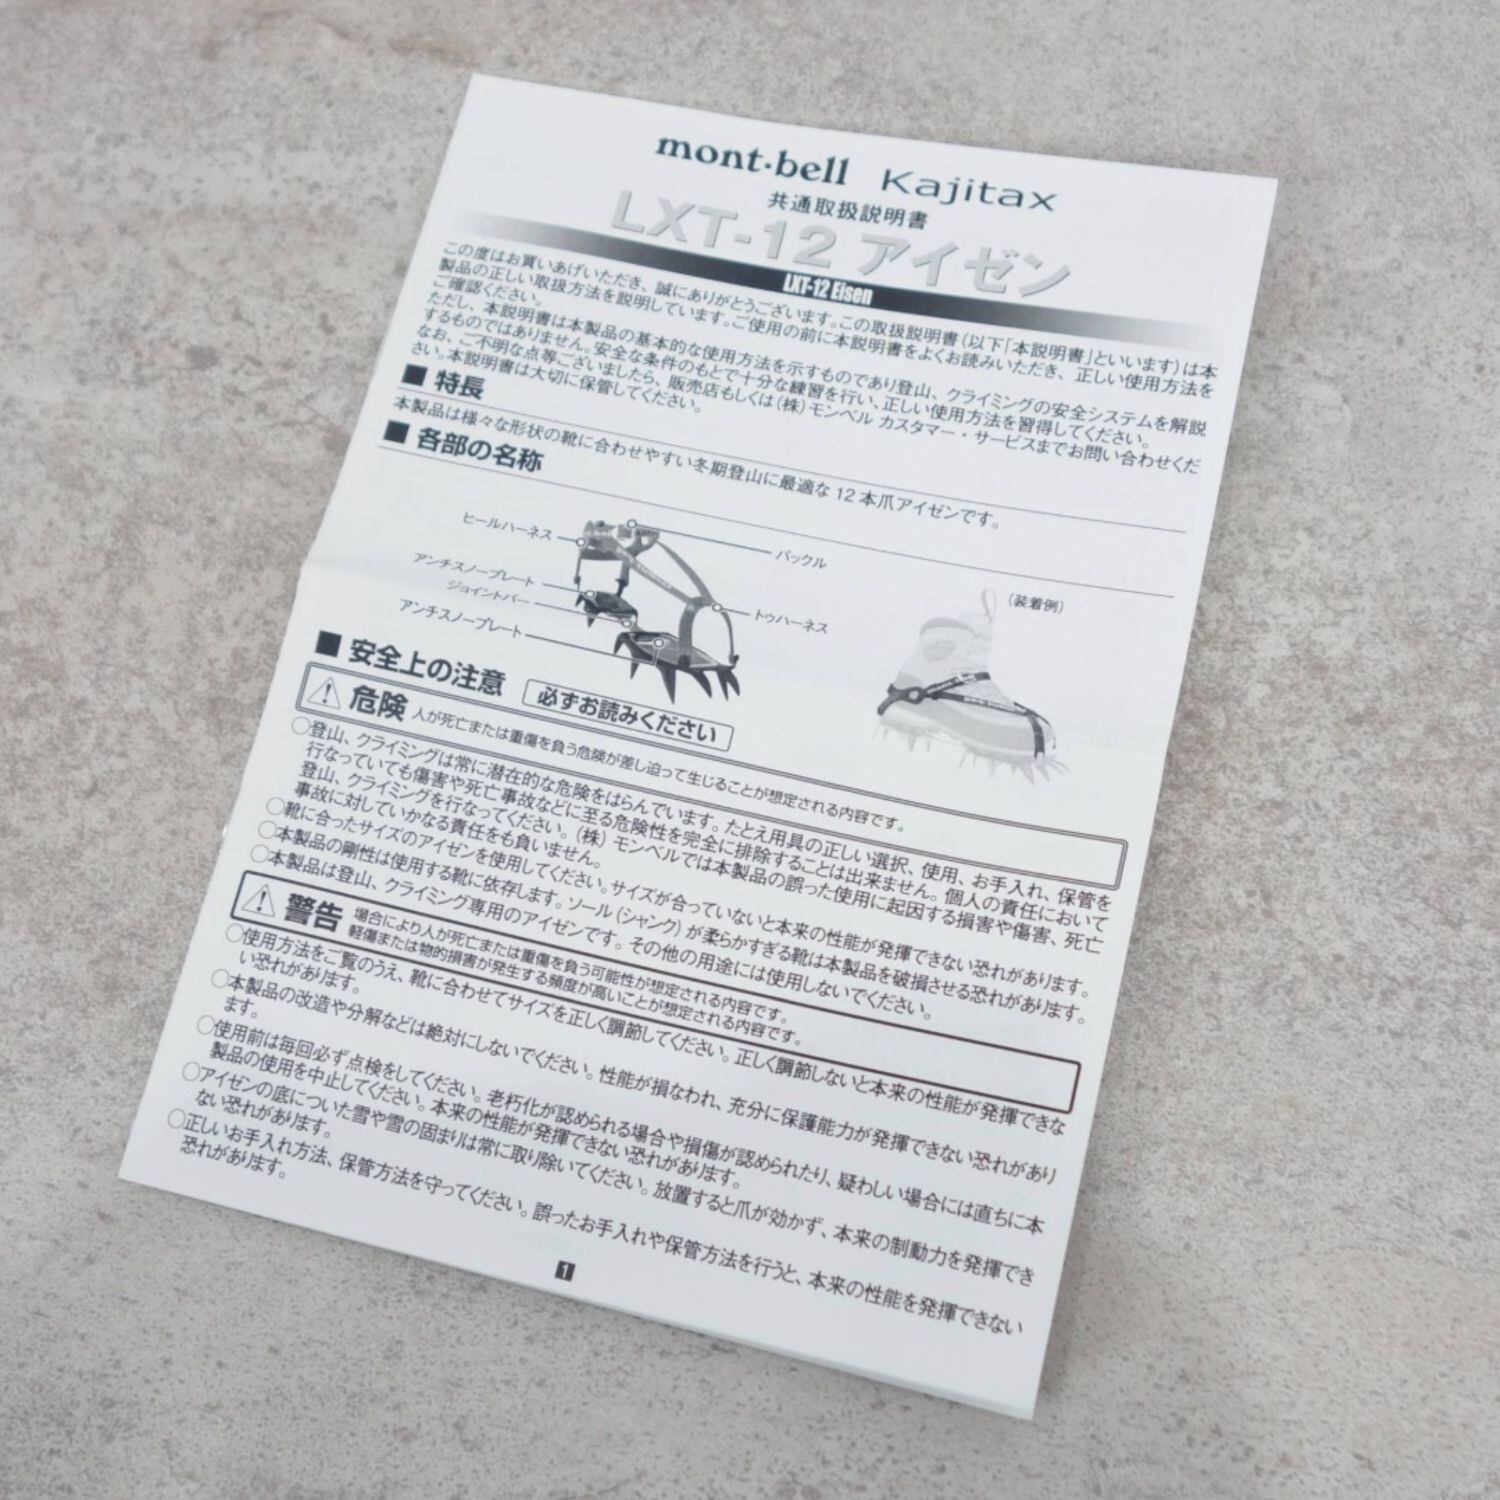 mont·bell Kajitax
共通取扱説明書
LXT-12 アイゼン
LXT-12 Eisen
この度はお買いあげいただき、誠にありがとうございます。この取扱説明書(以下「本説明書」といいます)は本
製品の正しい取扱方法を説明しています。ご使用の前に本説明書をよくお読みいただき、正しい使用方法を
ご確認ください。
ただし、本説明書は本製品の基本的な使用方法を示すものであり登山、クライミングの安全システムを解説
するものではありません。安全な条件のもとで十分な練習を行い、正しい使用方法を習得してください。
なお、ご不明な点等ございましたら、販売店もしくは(株)モンベル カスタマー・サービスまでお問い合わせくだ
さい。本説明書は大切に保管してください。
■ 特長
本製品は様々な形状の靴に合わせやすい冬期登山に最適な12本爪アイゼンです。
■ 各部の名称
ヒールハーネス
バックル
アンチスノープレート
ジョイントバー
アンチスノープレート
トゥハーネス
(装着例)
■ 安全上の注意 必ずお読みください
危険 人が死亡または重傷を負う危険が差し迫って生じることが想定される内容です。
○登山、クライミングは常に潜在的な危険をはらんでいます。たとえ用具の正しい選択、使用、お手入れ、保管を
行なっていても傷害や死亡事故などに至る危険性を完全に排除することは出来ません。個人の責任において
登山、クライミングを行なってください。(株)モンベルでは本製品の誤った使用に起因する損害や傷害、死亡
事故に対していかなる責任をも負いません。
○靴に合ったサイズのアイゼンを使用してください。サイズが合っていないと本来の性能が発揮できない恐れがあります。
○本製品の剛性は使用する靴に依存します。ソール(シャンク)が柔らかすぎる靴は本製品を破損させる恐れがあります。
○本製品は登山、クライミング専用のアイゼンです。その他の用途には使用しないでください。
警告 場合により人が死亡または重傷を負う可能性が想定される内容です。
軽傷または物的損害が発生する頻度が高いことが想定される内容です。
○使用方法をご覧のうえ、靴に合わせてサイズを正しく調節してください。正しく調節しないと本来の性能が発揮できな
い恐れがあります。
○本製品の改造や分解などは絶対にしないでください。性能が損なわれ、充分に保護能力が発揮できない恐れがあり
ます。
○使用前は毎回必ず点検をしてください。老朽化が認められる場合や損傷が認められたり、疑わしい場合には直ちに本
製品の使用を中止してください。本来の性能が発揮できない恐れがあります。
○アイゼンの底についた雪や雪の固まりは常に取り除いてください。放置すると爪が効かず、本来の制動力を発揮でき
ない恐れがあります。
○正しいお手入れ方法、保管方法を守ってください。誤ったお手入れや保管方法を行うと、本来の性能を発揮できない
恐れがあります。
1